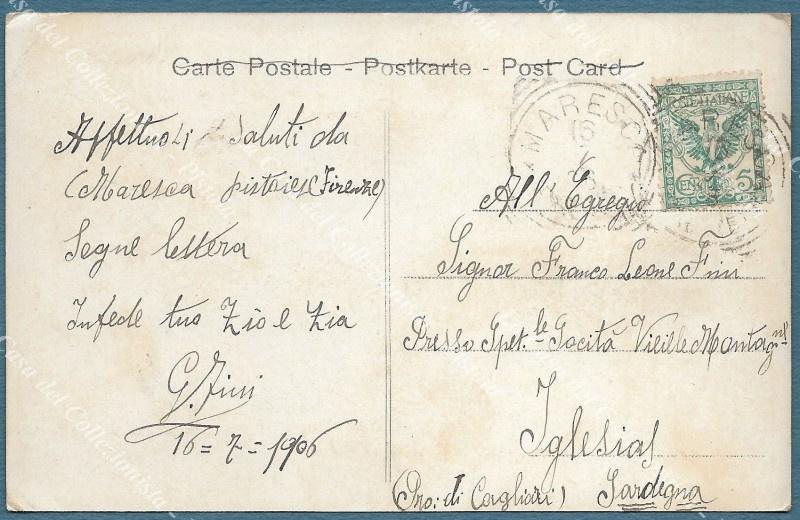 Carte Postale - Postkarte - Post Card
Affettuosi Saluti da
Maresca pistoiese (Firenze)
Segue lettera
Infede tuo Zio e Zia
G. Fini
16 = 7 = 1906
MARESCA
16
POSTE ITALIANE
CENT. 5
All Egregio
Signor Franco Leone Fini
Presso Spet.le Società Vieille Montagne
Iglesias
(Pro: di Cagliari) Sardegna
Casa del Collezionista